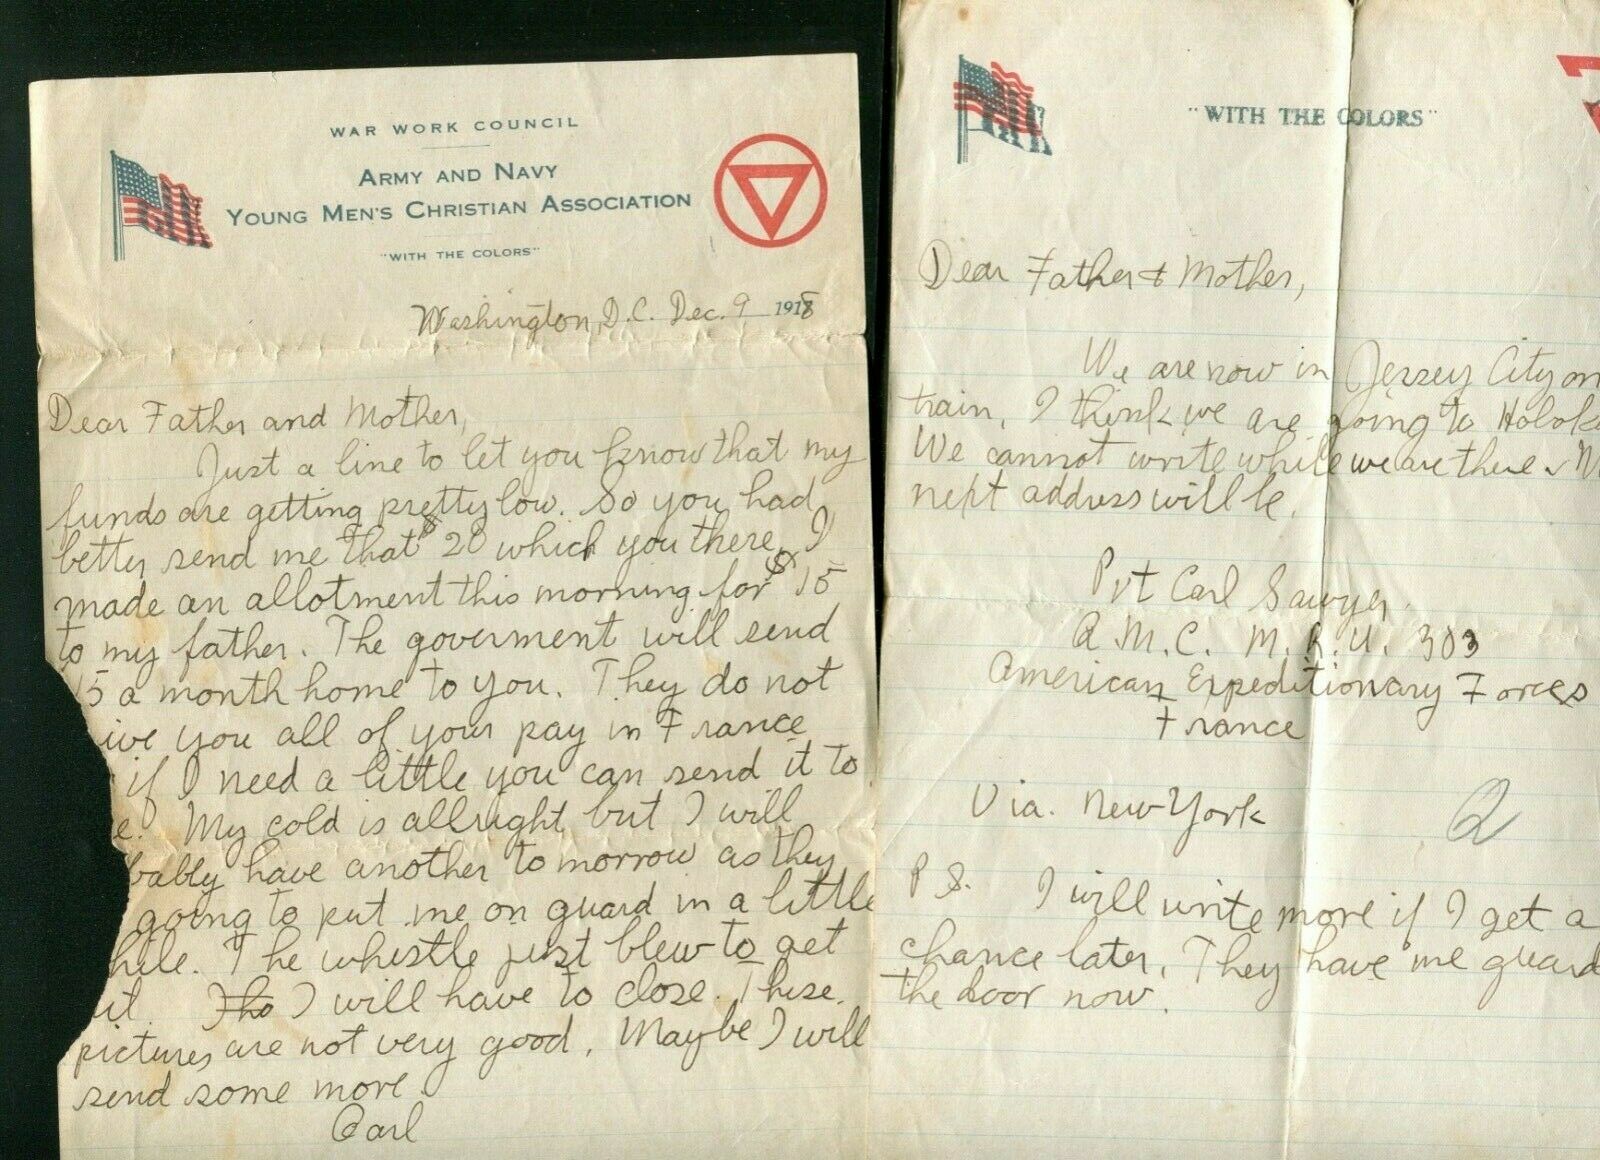 WAR WORK COUNCIL
ARMY AND NAVY
YOUNG MEN'S CHRISTIAN ASSOCIATION
"WITH THE COLORS"
Washington, D.C. Dec. 9 1918
Dear Father and Mother,
Just a line to let you know that my
funds are getting pretty low. So you had
better send me that $20 which you there. I
made an allotment this morning for $15
to my father. The goverment will send
15 a month home to you. They do not
ive you all of your pay in France
if I need a little you can send it to
e. My cold is allright but I will
bably have another tomorrow as they
going to put me on guard in a little
hile. The whistle just blew to get
it. I will have to close. These
pictures are not very good. Maybe I will
send some more.
Carl
"WITH THE COLORS"
Dear Father & Mother,
We are now in Jersey City on
train, I think we are going to Hobok
We cannot write while we are there
next address will be.
Pvt Carl Sawyer.
A.M.C. M.R.U. 303
American Expeditionary Forces
France
Via. New York
2
P S. I will write more if I get a
chance later. They have me guard
the door now.